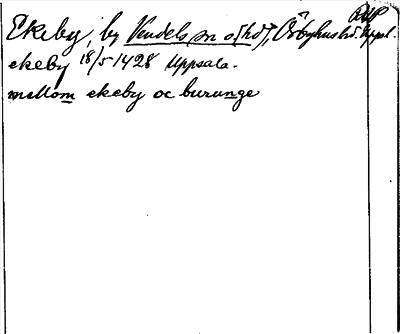 Ekeby, by Vendels sn o. [hd], Örbyhus hd. Uppl.
ekeby 18/5 1428 Uppsala.
mellom ekeby oc burunge